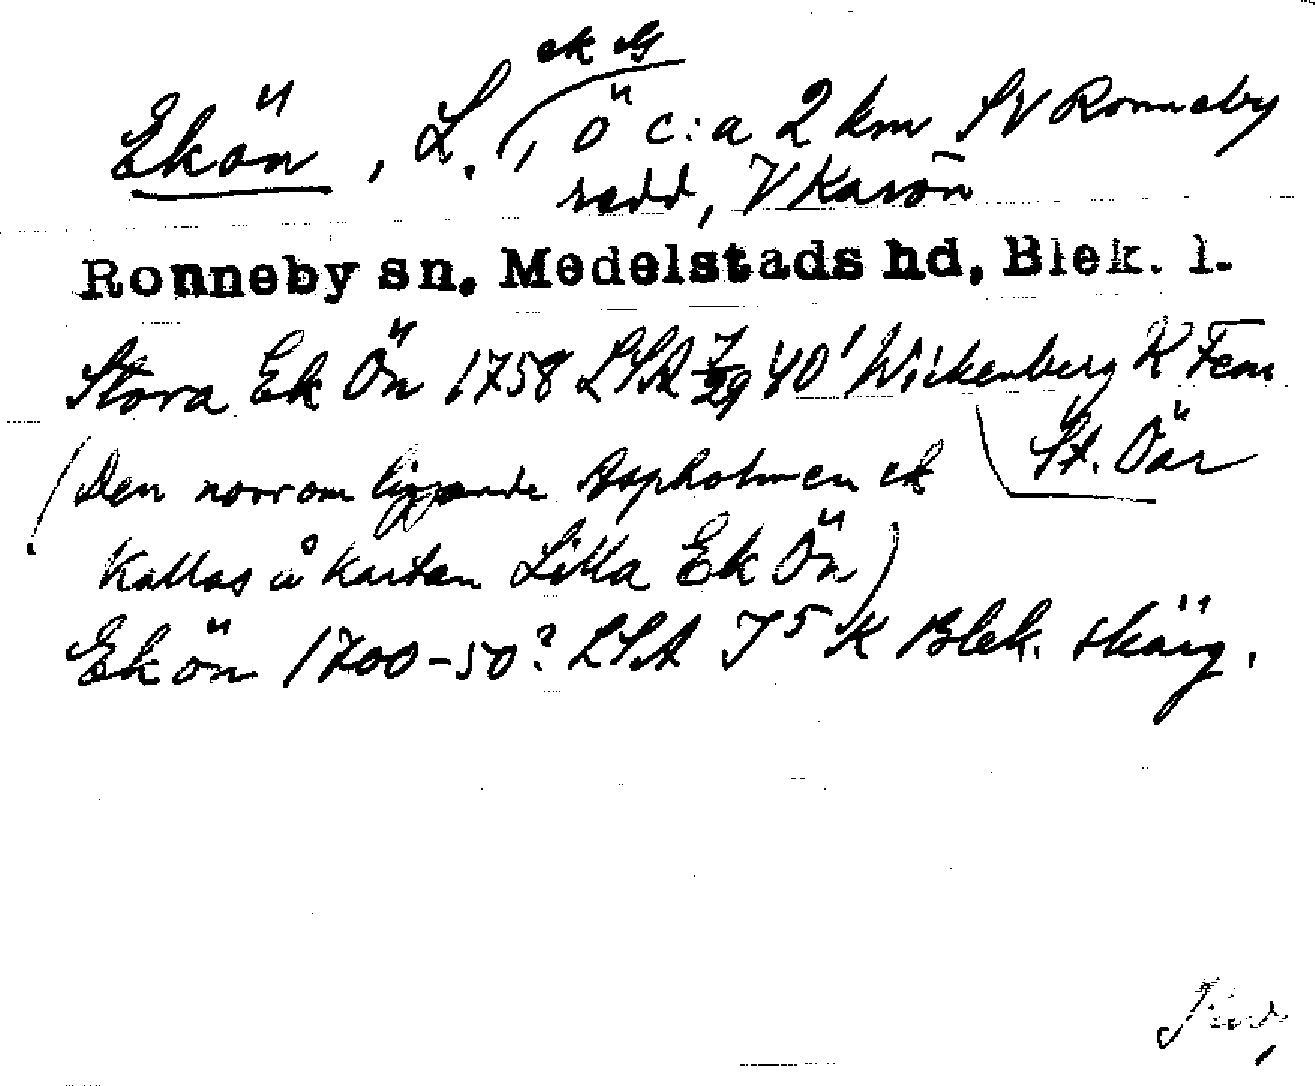 ek G
Ekön, L., ö c:a 2 km SV Ronneby
redd, V Karön
Ronneby sn. Medelstads hd, Blek. l.
Stora Ek Ön 1758 LSA 7/29 40' Wickenberg K Fem
St. Öar
(Den norr om liggande Aspholmen ek
kallas å kartan Lilla Ek Ön)
Ekön 1700-50? LSA J5 K Blek. skärg.